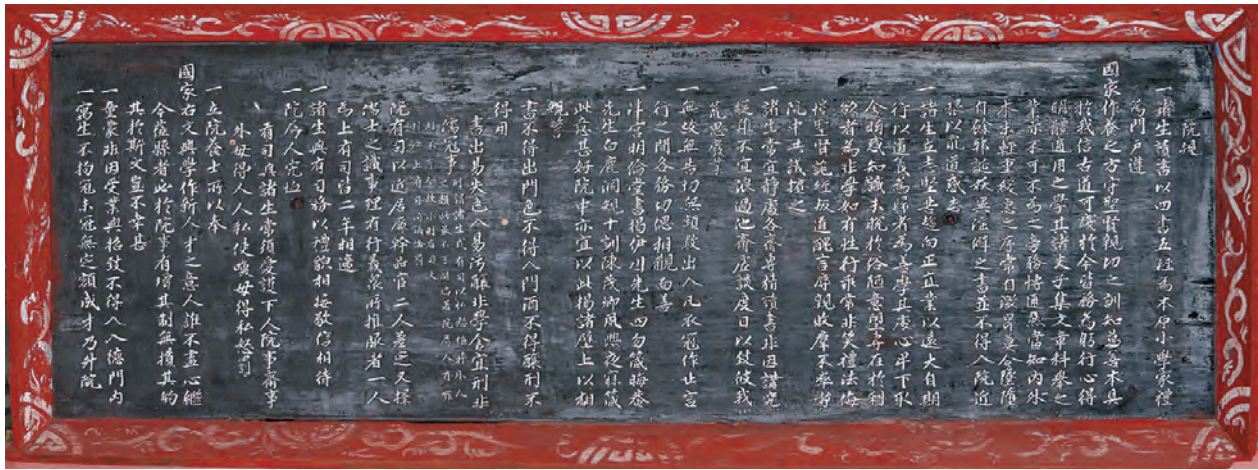 院規
一諸生讀書以四書五經爲本原小學家禮
爲門戶遵
國家作養之方守聖賢親切之訓知萬善本具
於我信古道可踐於今皆務爲躬行心得
明體適用之學其諸史子集文章科擧之
業亦不可不爲之旁務博通然當知內外
本末輕重緩急之序常自激昂莫令墜墮
自餘邪誕妖異淫僻之書並不得入院近
眼以亂道惑志
一諸生立志堅苦趨向正直業以遠大自期
行以道義爲歸者爲善學其處心卑下取
舍眩惑知識未脫於俗陋意望專在於利
欲者爲非學如有性行乖常非笑禮法侮
慢聖賢詭經反道醜言辱親敗羣不率者
院中共議擯之
一諸生常宜靜處各齋專精讀書非因講究
疑難不宜浪過他齋虛談度日以致彼我
荒思廢業
一無故無告切無頻數出入凡衣冠作止言
行之間各務切偲相觀而善
一泮宮明倫堂書揭伊川先生四勿箴晦菴
先生白鹿洞規十訓陳茂卿夙興夜寐箴
此意甚好院中亦宜以此揭諸壁上以相
規警
一書不得出門色不得入門酒不得釀刑不
得用
書出易失色入易汚釀非學舍宜刑非
儒冠事刑謂諸生或有司以私怒捶打外人
之類此最不可開端若院屬人有罪
則不可全赦小則有司大
則與上有司同議論罰
院有司以近居廉幹品官二人差定又擇
儒士之識事理有行義衆所推服者一人
爲上有司皆二年相遞
一諸生與有司務以禮貌相接敬信相待
一院屬人完恤
有司與諸生常須愛護下人院事齋事
外毋得人人私使喚毋得私怒罰
一立院養士所以奉
國家右文興學作新人才之意人誰不盡心繼
今莅縣者必於院事有增其制無損其約
其於斯文豈不幸甚
一童蒙非因受業與招致不得入入德門內
一寓生不拘冠未冠無定額成才乃升院